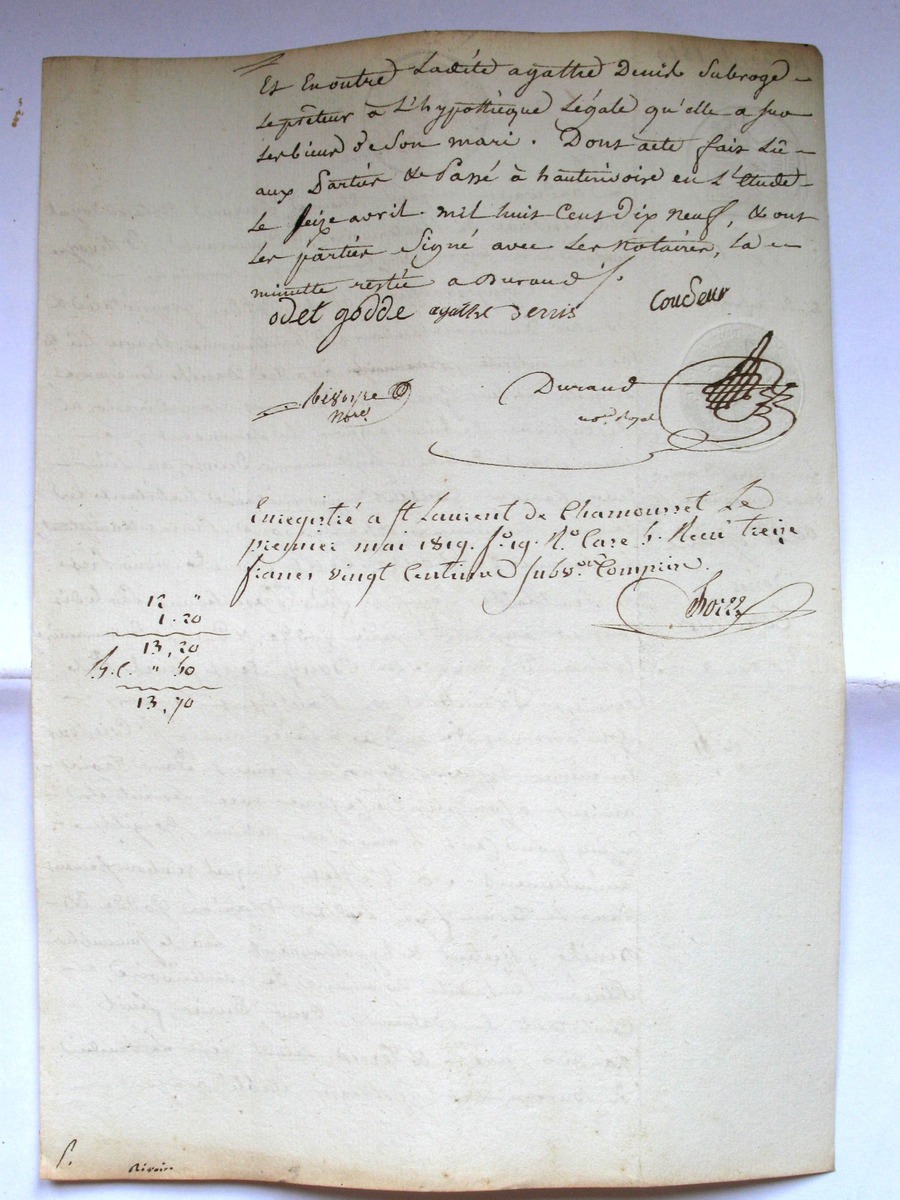 Et En outre Ladite agathe Denis Subroge
Le prêteur à L'hypothèque Légale qu'elle a sur
Les bien de Son mari. Dont acte fait Lû
aux Parties & Passé à hauterivoire en L'étude
Le Seize avril mil huit Cent Dix neuf, & ont
Les parties Signé avec Les Notaires, La
minutte restée a Durand
odet godde agathe denis Coudeur
Rivoire Nore.
Durand
nore. Royal
Enregistré a St Laurent de Chamousset Le
premier mai 1819. fo. 19. Ro. Case 5. Reçu treize
francs vingt Centimes Subvon. Comprise.
12 "
1.20
13,20
" 50
13,70
Rivoire